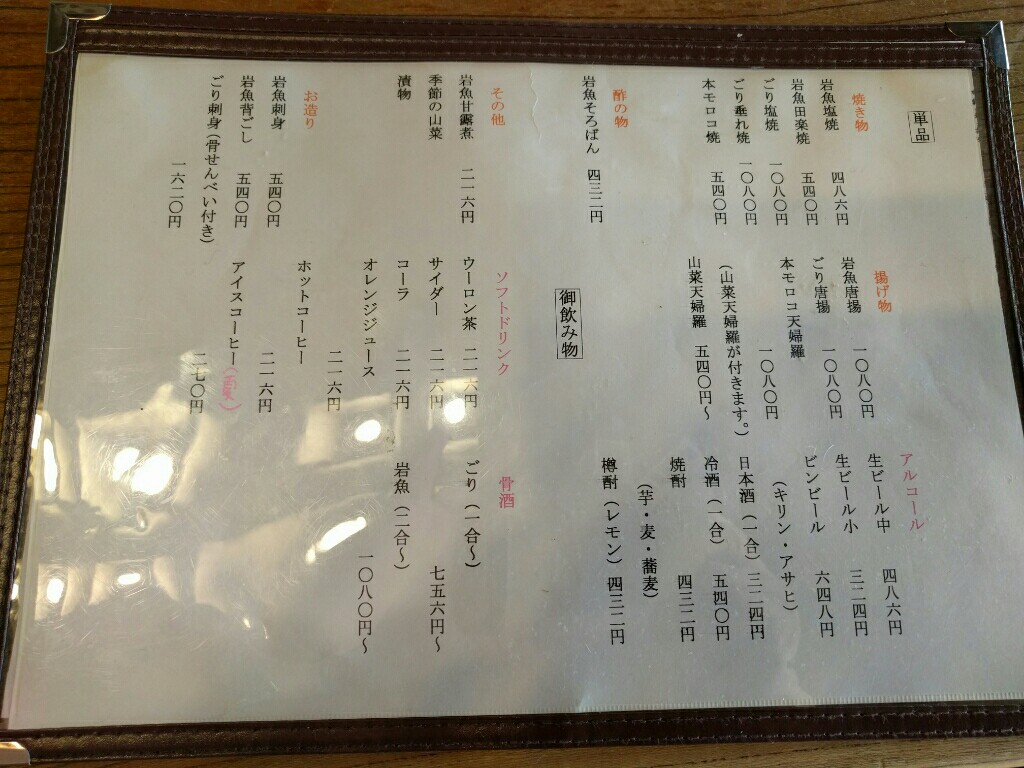 単品
焼き物
岩魚塩焼 四八六円
岩魚田楽焼 五四〇円
ごり塩焼 一〇八〇円
ごり垂れ焼 一〇八〇円
本モロコ焼 五四〇円
酢の物
岩魚そろばん 四三二円
その他
岩魚甘露煮 二一六円
季節の山菜
漬物
お造り
岩魚刺身 五四〇円
岩魚背ごし 五四〇円
ごり刺身(骨せんべい付き)
一六二〇円
揚げ物
岩魚唐揚 一〇八〇円
ごり唐揚 一〇八〇円
本モロコ天婦羅
一〇八〇円
(山菜天婦羅が付きます。)
山菜天婦羅 五四〇円~
御飲み物
ソフトドリンク
ウーロン茶 二一六円
サイダー 二一六円
コーラ 二一六円
オレンジジュース
二一六円
ホットコーヒー
二一六円
アイスコーヒー(夏)
二七〇円
アルコール
生ビール中 四八六円
生ビール小 三二四円
ビンビール 六四八円
(キリン・アサヒ)
日本酒(一合)三二四円
冷酒(一合) 五四〇円
焼酎 四三二円
(芋・麦・蕎麦)
樽酎(レモン)四三二円
骨酒
ごり(一合~)
七五六円~
岩魚(二合~)
一〇八〇円~